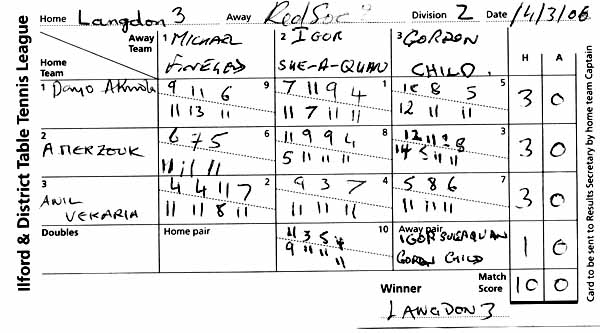 Home Langdon 3 Away Red Sox Division 2 Date 14/3/06
Ilford & District Table Tennis League
Away Team
Home Team
1 MICHAEL
2 IGOR
3 GORDON CHILD
H A
1 9 11 6 9
11 13 11
7 11 9 4 1
11 7 11 11
8 5 5
12 11 11
3 0
2 A MERZOUK
6 7 5 6
11 11 11
11 9 9 4 8
5 11 11 11
3
3 0
3 ANIL VEKARIA
4 4 11 7 2
11 11 8 11
9 3 7 4
11 11 11
5 8 6 7
11 11 11
3 0
Doubles
Home pair
11 3 5 4 10
9 11 11 11
Away pair
IGOR
GORDN CHILD
1 0
Winner
Match Score
10 0
LANGDON 3
Card to be sent to Results Secretary by home team Captain